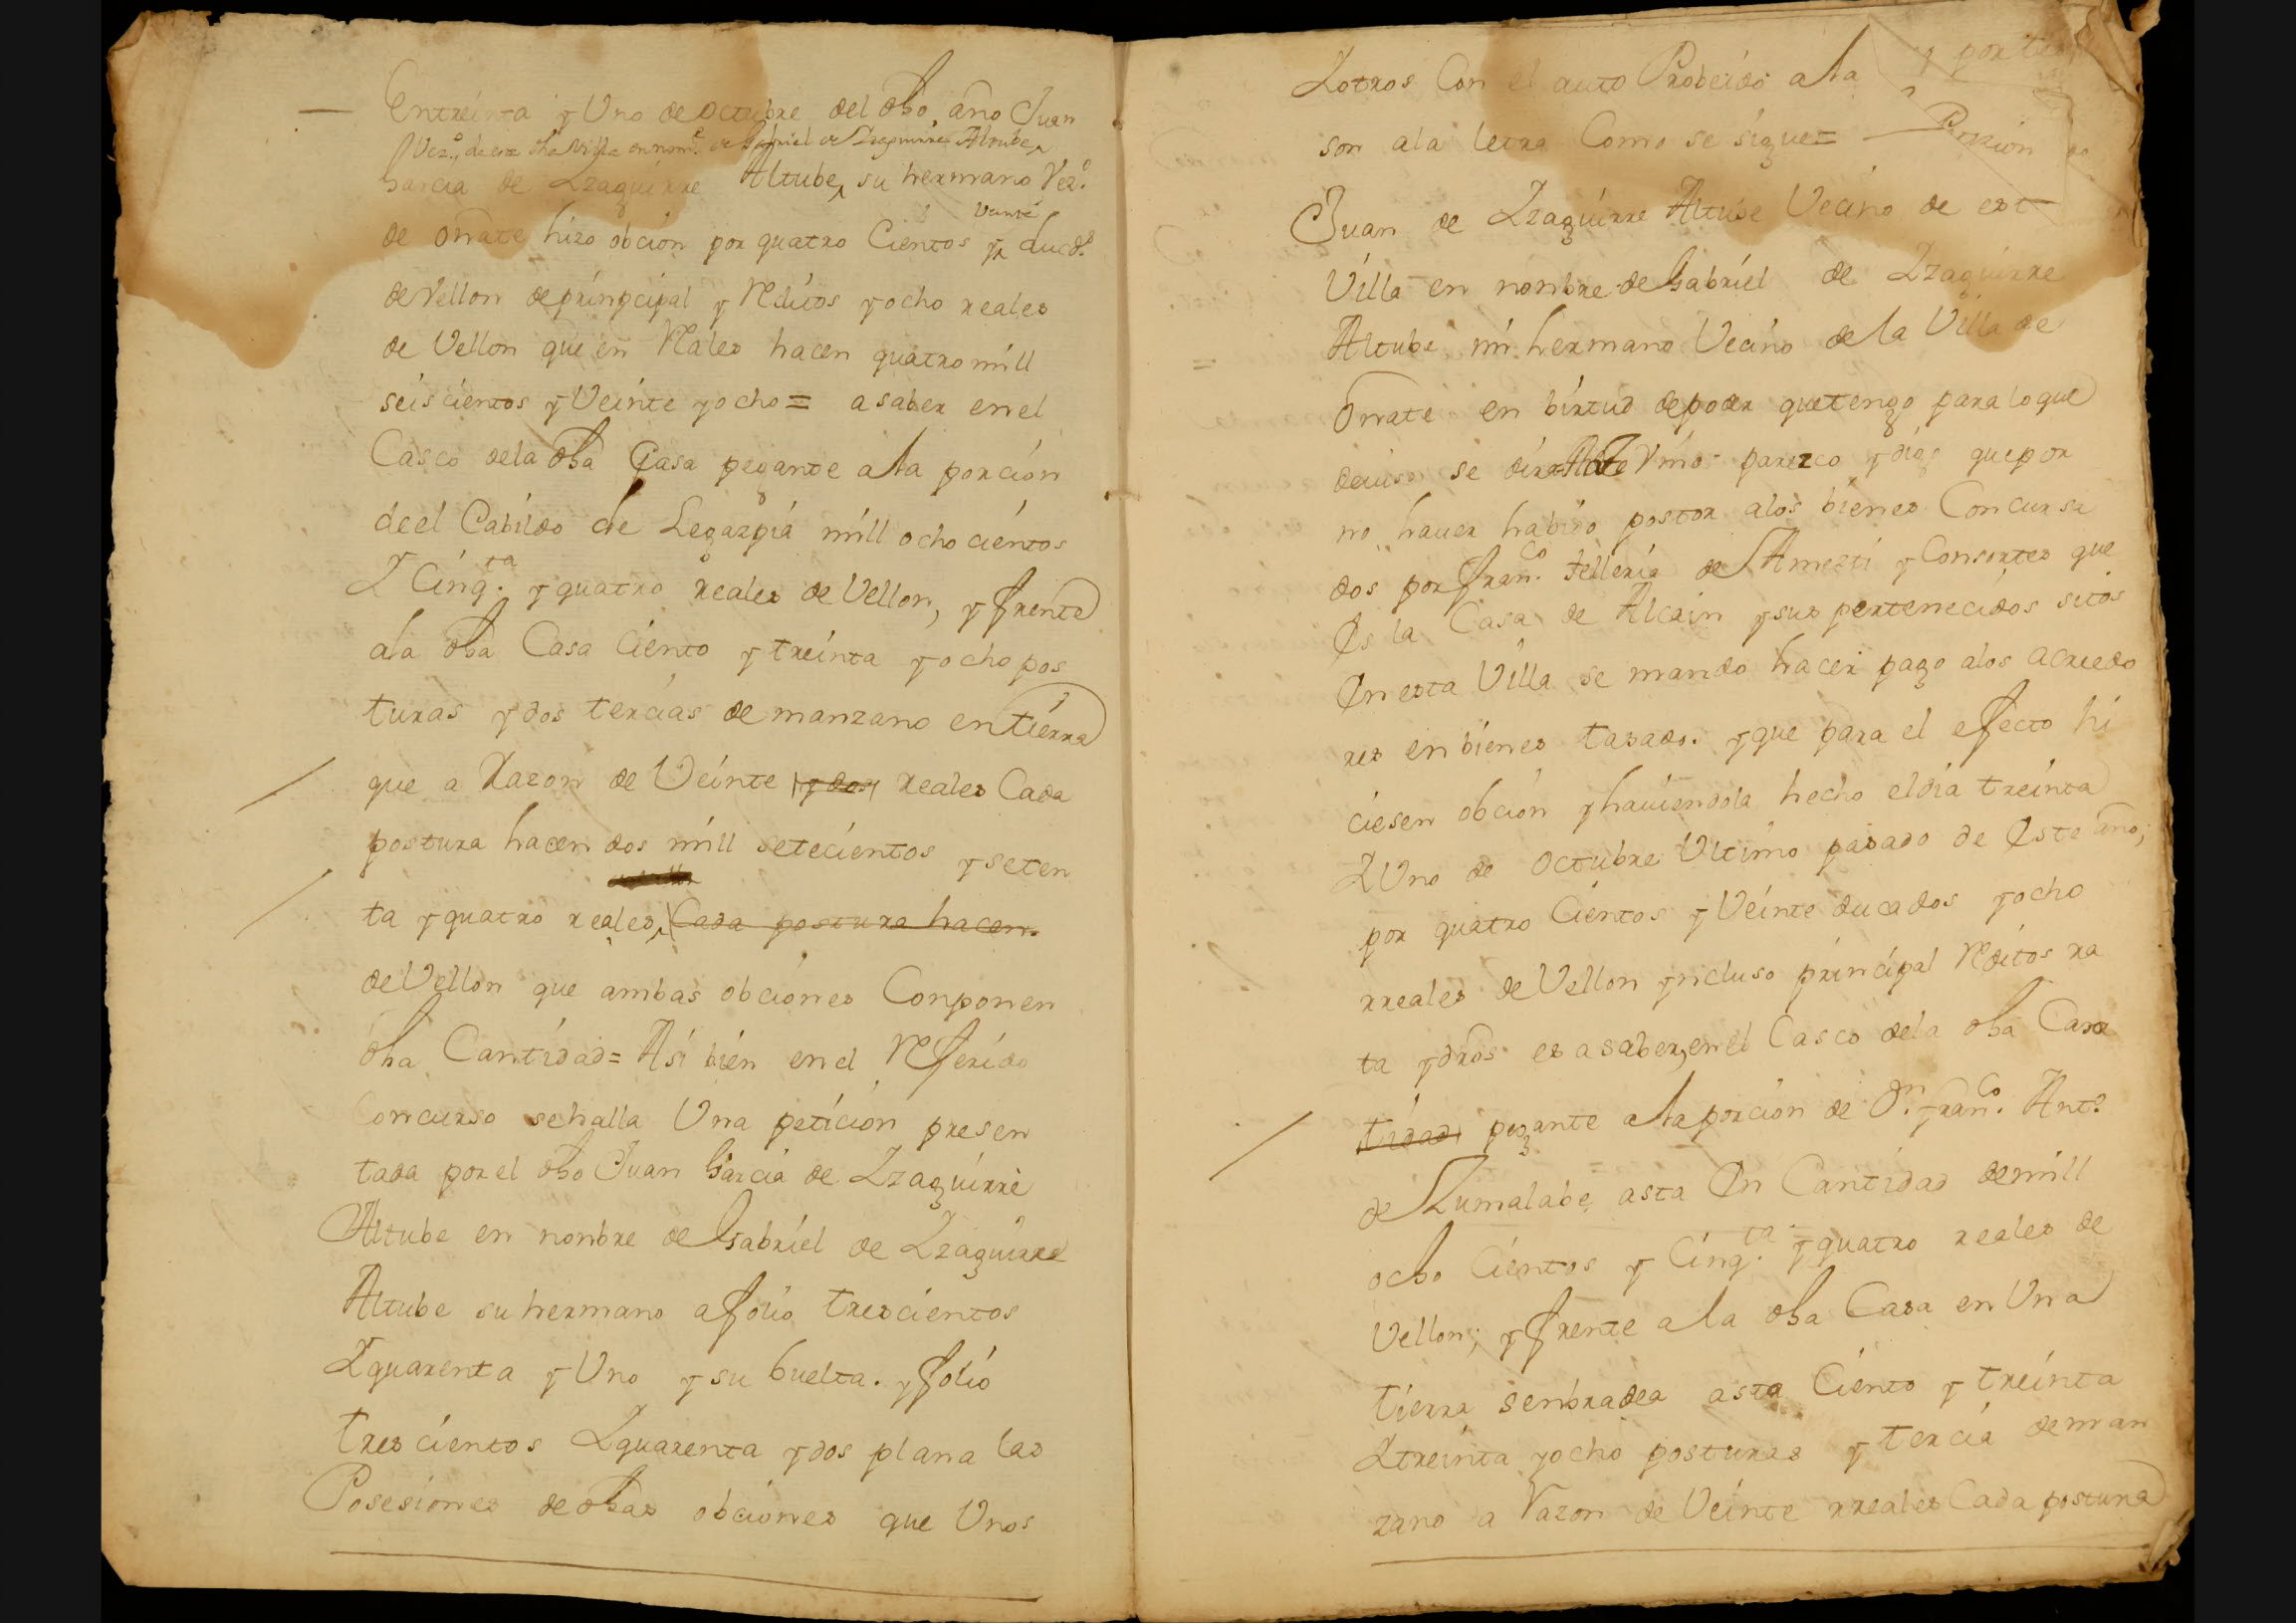 Entreinta y Uno de octubre del dho año Juan
Vez.º de esta dha Villa en nom.e de Gabriel de Yzaguirre Altube
Garcia de Yzaguirre Altube, su hermano Vez.º
de onate hizo obcion por quatro Cientos y veinte ducd.s
de Vellon de prinpcipal y Reditos y ocho reales
de Vellon que en Rales hacen quatro mill
seis cientos y Veinte y ocho = a saber en el
Casco dela dha Casa pegante a la porcion
de el Cabildo de Legazpia mill ocho cientos
Y Cinq.ta y quatro reales de Vellon, y frente
ala dha Casa Ciento y treinta y ocho pos
turas y dos tercias de manzano en tierra
que a Razon de Veinte y dos reales Cada
postura hacen dos mill setecientos y seten
ta y quatro reales, Cada postura hacen
de Vellon que ambas obciones Conponen
dha Cantidad = Asi bien en el Referido
Concurso se halla Una peticion presen
tada por el dho Juan Garcia de Yzaguirre
Altube en nonbre de Gabriel de Yzaguirre
Altube su hermano a folio trescientos
Yquarenta y Uno y su buelta. y folio
tres cientos Yquarenta y dos plana las
Posesiones de dhas obciones que Unos
Yotros Con el auto Probeido a la
son ala letra Como se sigue =
Peticion
Juan de Yzaguirre Altube Vecino de est
Villa en nonbre de Gabriel de Yzaguirre
Altube mi hermano Vecino de la Villa de
Onate en birtud de poder que tengo para lo que
de iuso se dira Ante Vm.o parezco y digo que por
no hauer habido postor alos bienes Concursa
dos por Fran.co Telleria de Amezti y Consortes que
Es la Casa de Alcain y sus pertenecidos sitos
En esta Villa se mando hacer pago alos acredo
res en bienes tasados. y que para el efecto hi
ciesen obcion y hauiendola hecho el dia treinta
YUno de octubre Ultimo pasado de Este año,
por quatro Cientos y Veinte ducados y ocho
rreales de Vellon yncluso principal Reditos ra
ta y dros es a saber, en el Casco dela dha Casa
tidad pegante a la porcion de D.n Fran.co Ant.º
de Zumalabe asta En Cantidad de mill
ocho Cientos y Cinq.ta y quatro reales de
Vellon; y frente a la dha Casa en Una
tierra senbradea asta Ciento y treinta
Ytreinta y ocho posturas y tercia de man
zano a Razon de Veinte rreales Cada postura